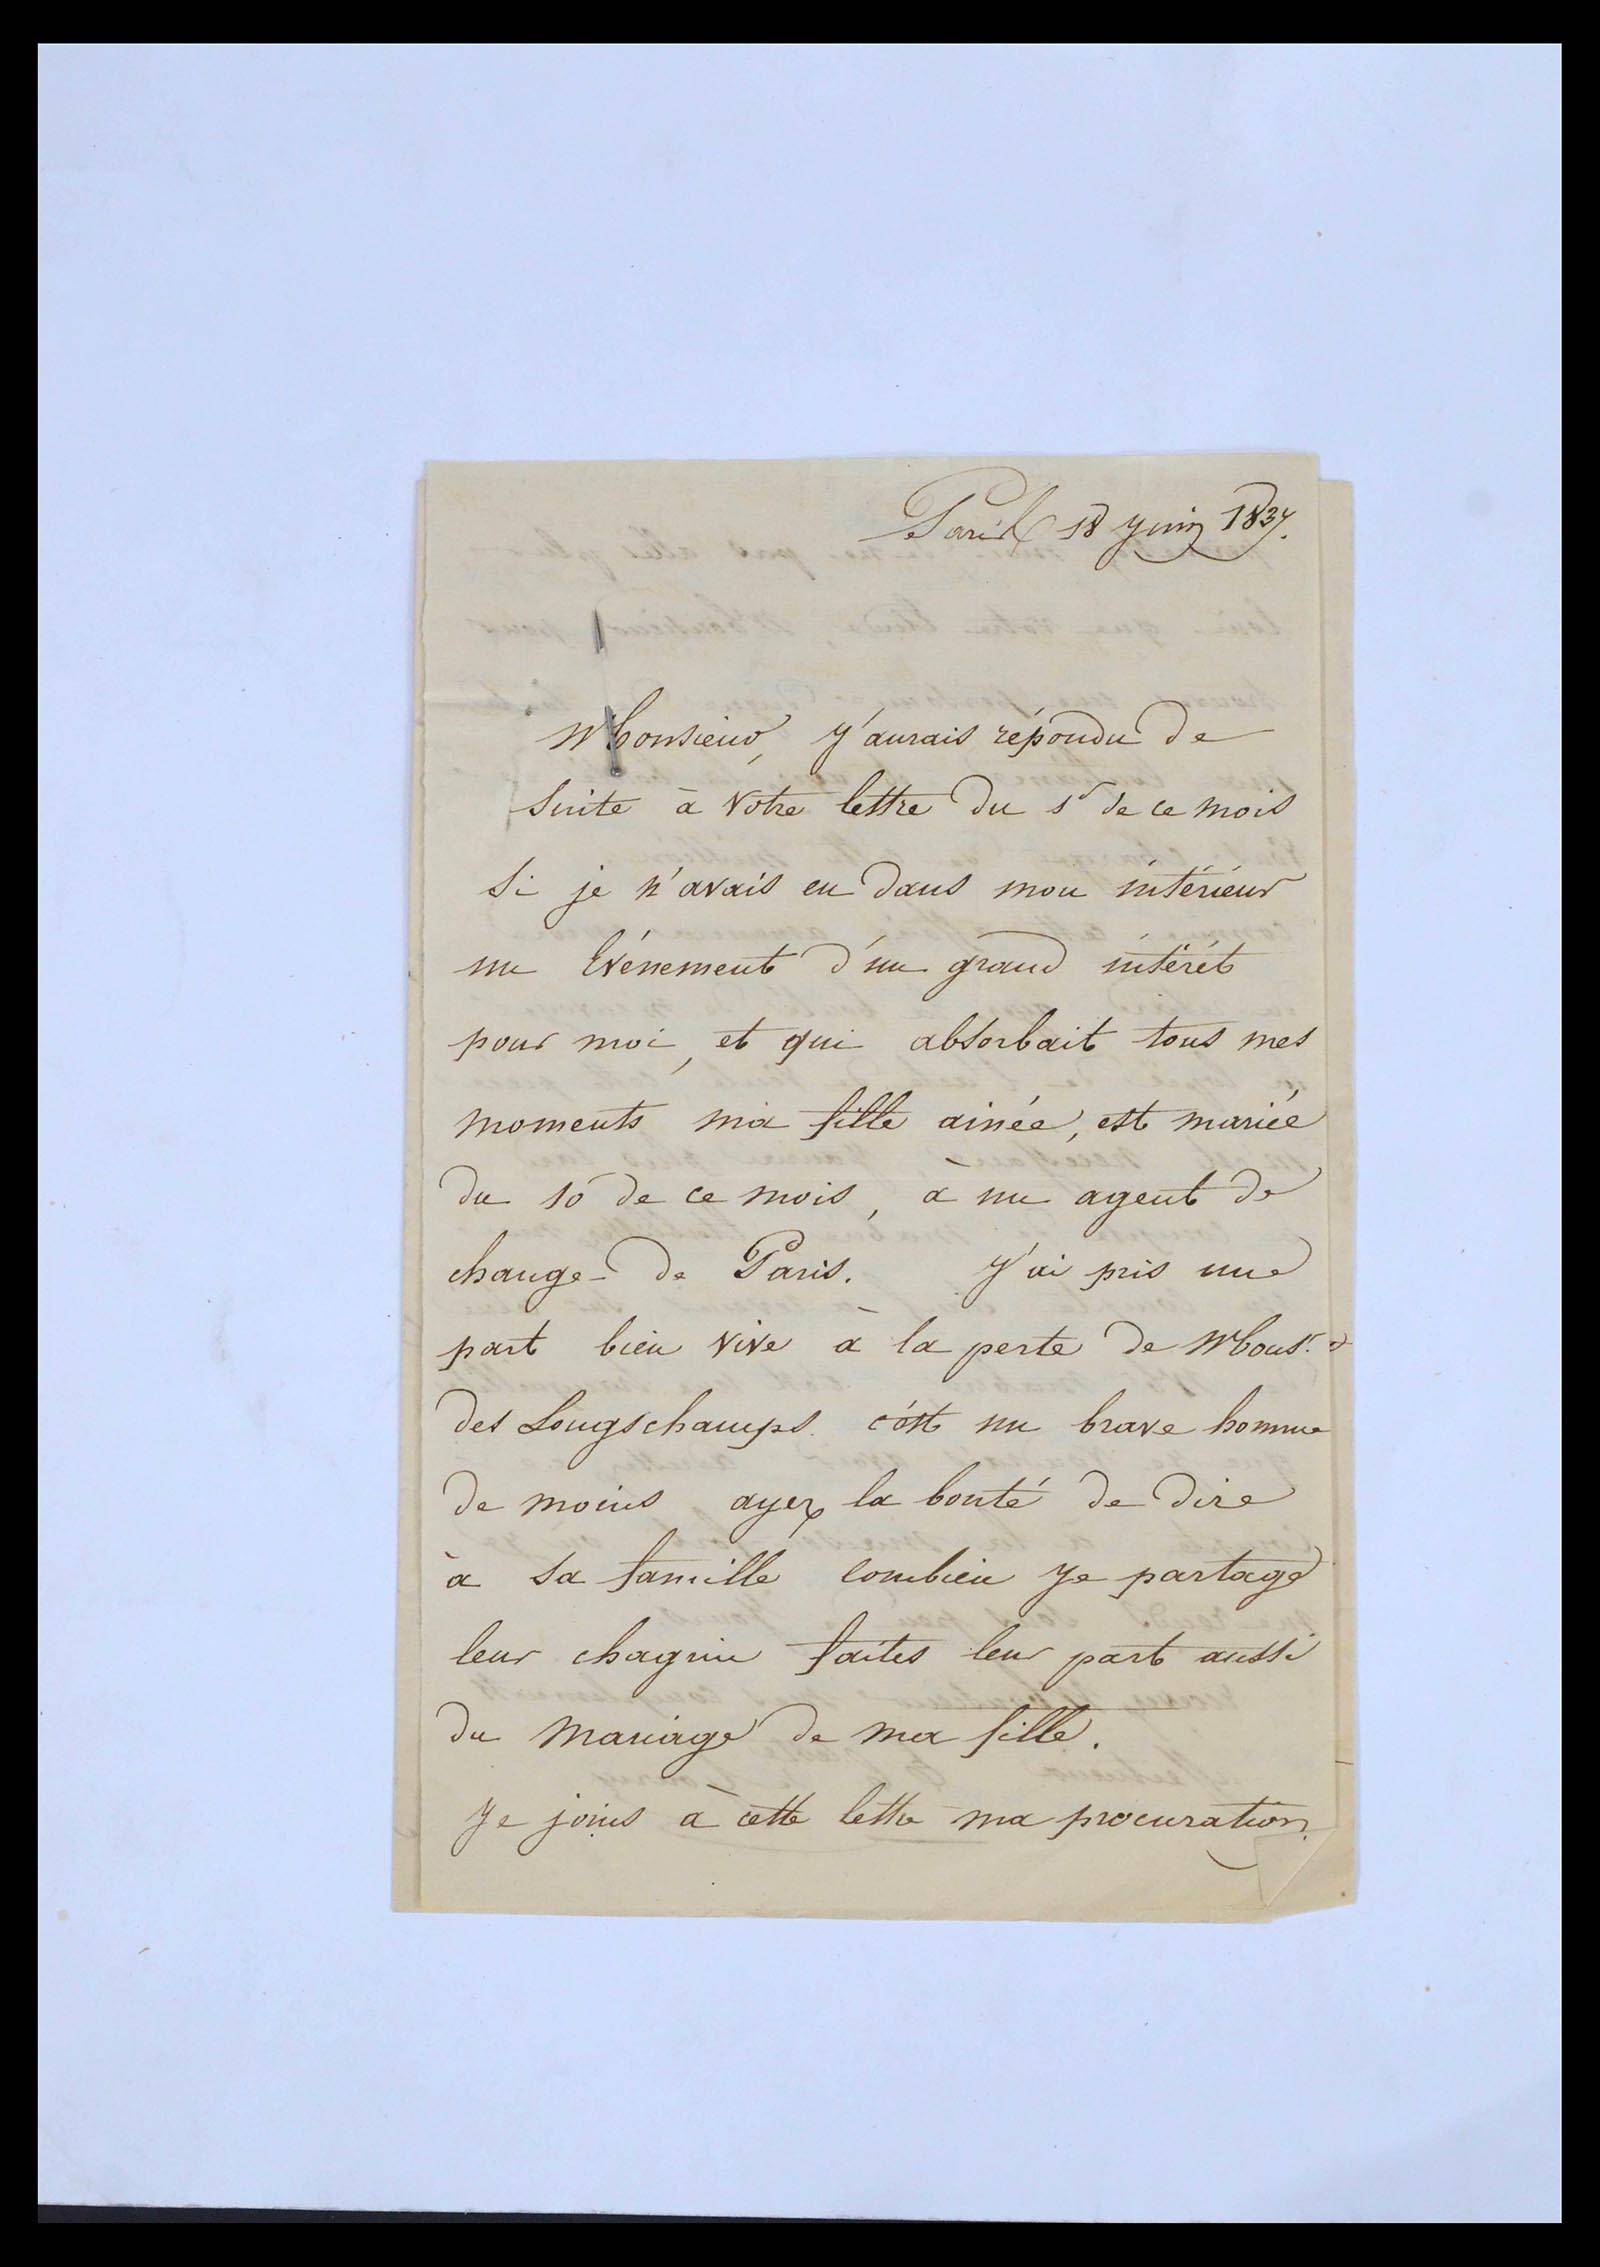 Paris 18 juin 1837.
Monsieur, j'aurais répondu de
suite à votre lettre du 1r de ce mois
si je n'avais eu dans mon intérieur
un Evénement d'un grand intérêt
pour moi, et qui absorbait tous mes
moments ma fille ainée, est mariée
du 10 de ce mois, à un agent de
change de Paris. J'ai pris une
part bien vive à la perte de Monsr.
des Longschamps. c'est un brave homme
de moins ayez la bonté de dire
à sa famille combien je partage
leur chagrin faites leur part aussi
du mariage de ma fille.
Je joins à cette lettre ma procuration.